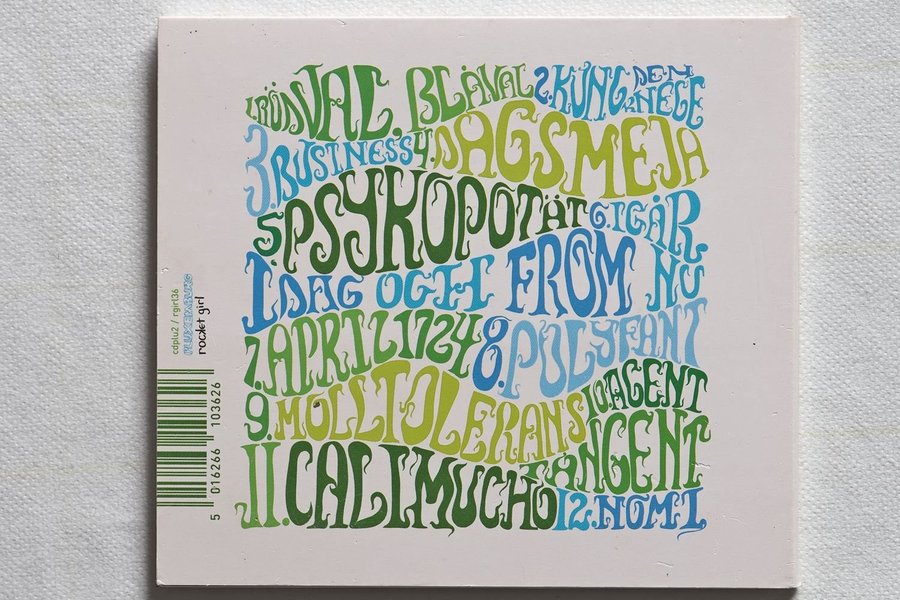 1.RÖDVAL. BLÅVAL 2.KUNG DEN KNEGE
3.BUSINESS 4.DAGSMEJA
5.PSYKOPOTÄT 6.IGÅR
IDAG OCH FROM NU
7.APRIL 1724 8.POLYFANT
9.MOLLTOLERANS 10.AGENT
TANGENT
11.CALIMUCHO 12.NOMI
cdplu2 / rgirl36
PLUXEMBURG
rocket girl
5 016266 103626